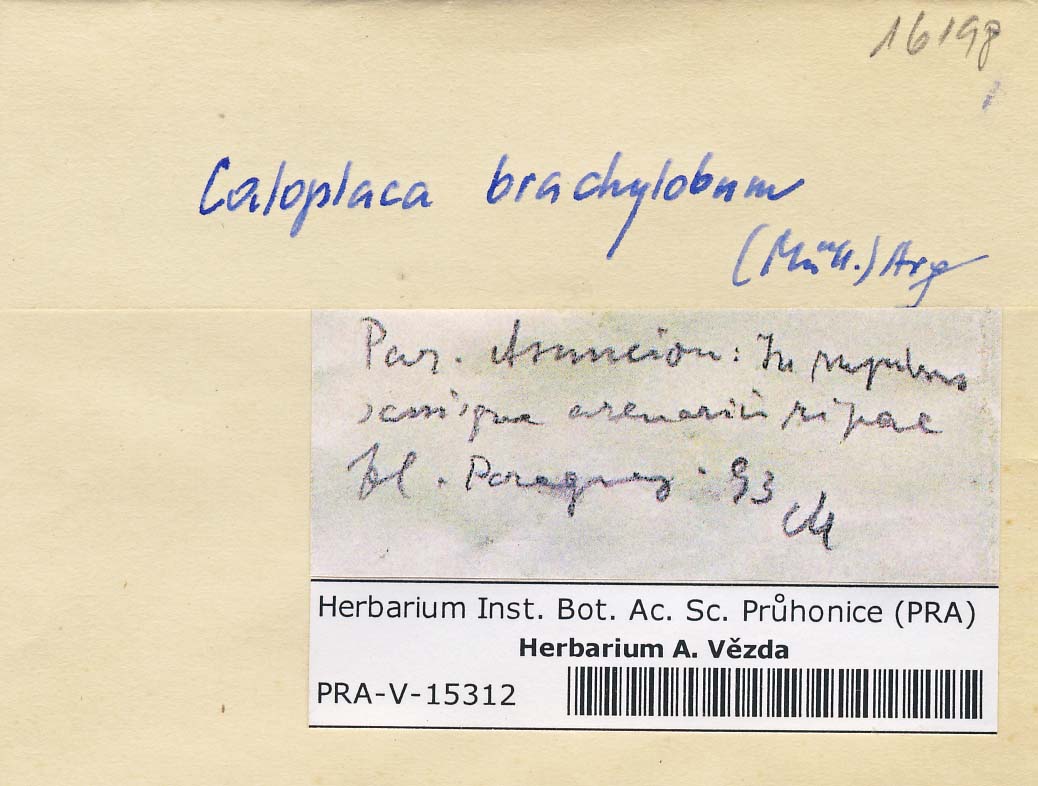 16198
Caloplaca brachylobum
(Müll.) Arg
Par. Asuncion: In rupibus
saxisque arenariis ripae
fl. Paraguay. 93
Herbarium Inst. Bot. Ac. Sc. Průhonice (PRA)
Herbarium A. Vězda
PRA-V-15312